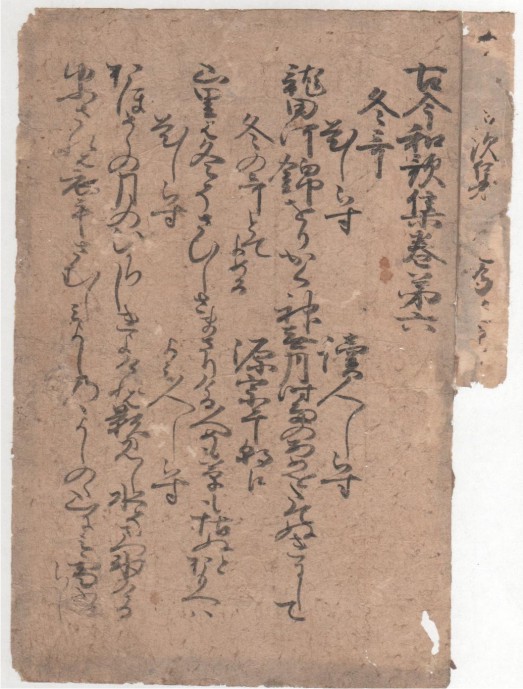 古今和歌集巻第六
冬哥
題しらす
讀人しらす
龍田河錦をりかく神無月時雨のあめをたてぬきにして
冬の哥とてよめる
源宗于朝臣
山里は冬そさひしさまさりける人めも草もかれぬとおもへは
題しらす
よみ人しらす
おほそらの月のひかりしきよけれは影見し水そまつこほりける
ゆふされは衣手さむしみよしのゝよしのの山にみ雪